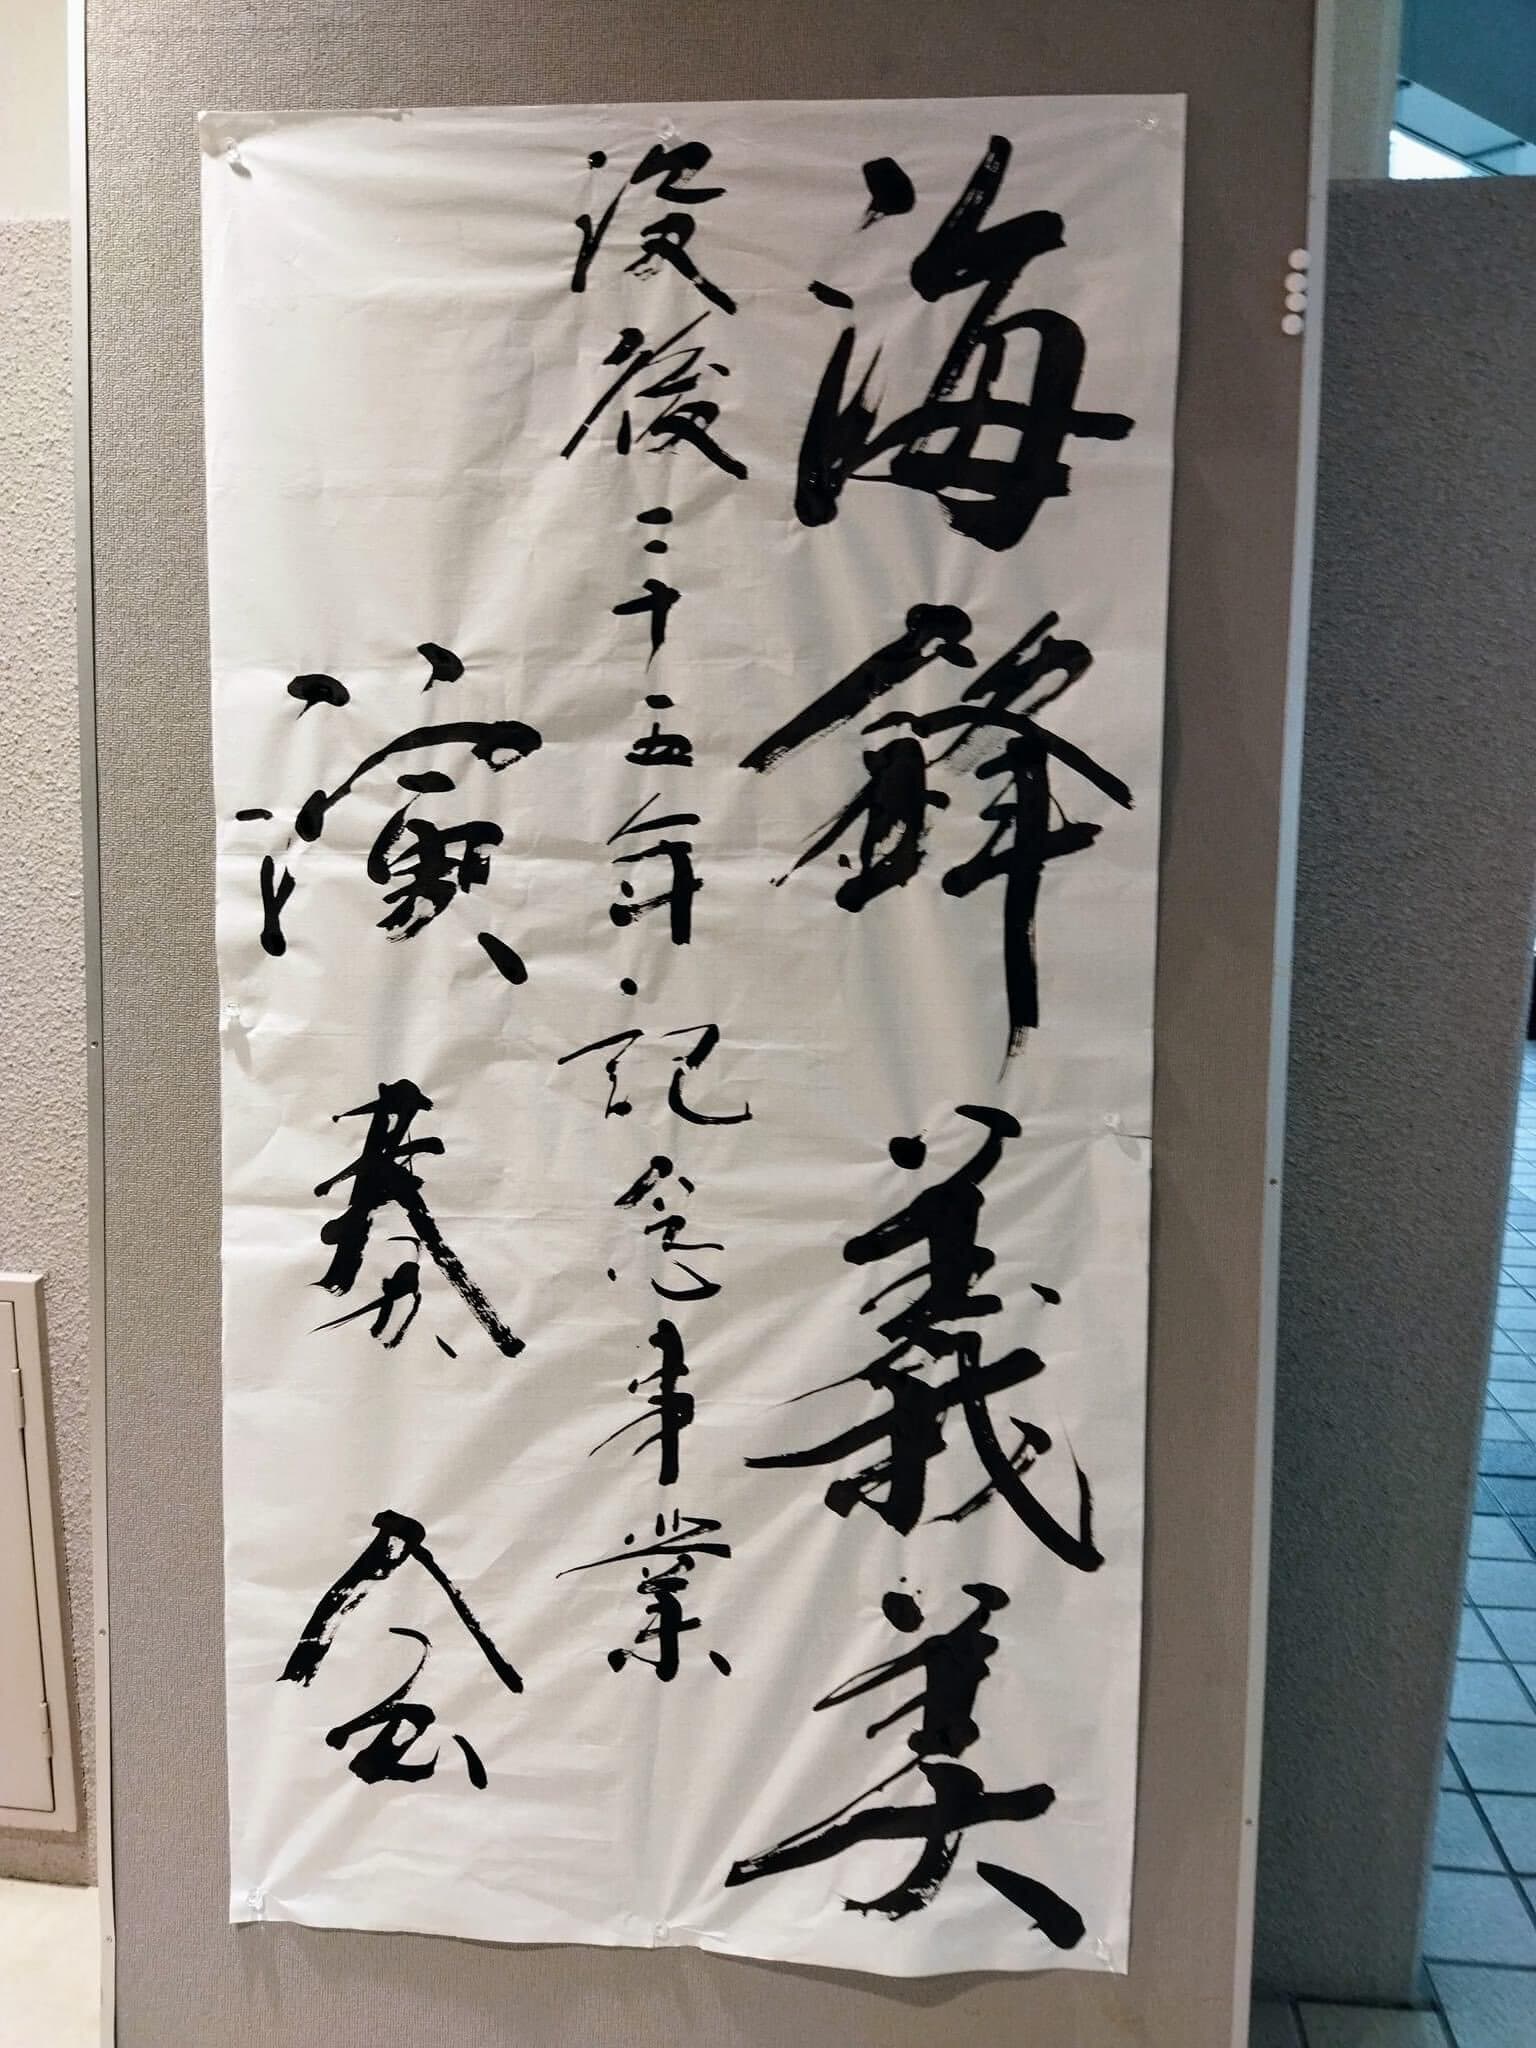 海鋒義美
没後二十五年・記念事業
演奏会